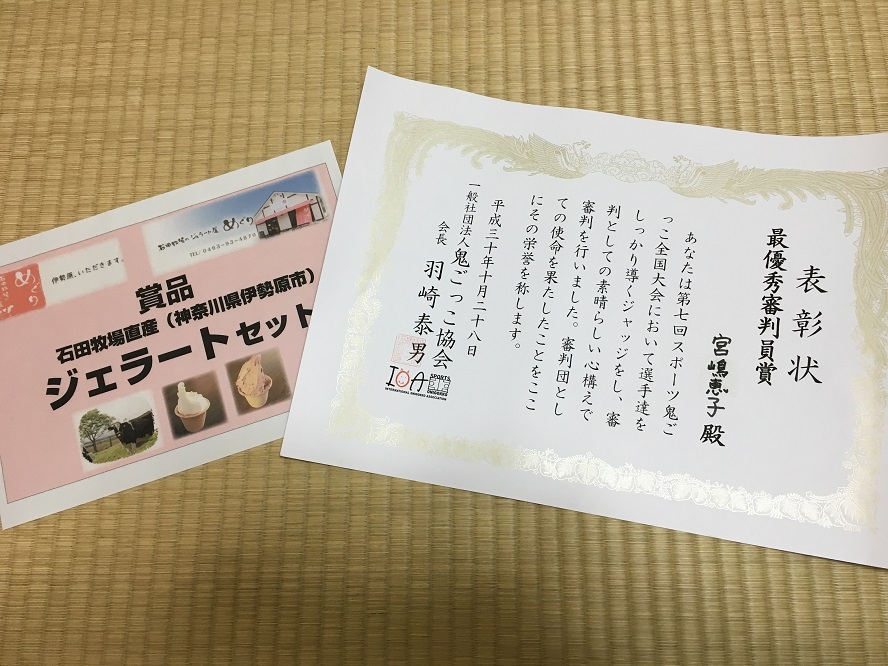 伊勢原、いただきます。
めぐり
石田牧場のジェラート屋 めぐり
TEL・0463-83-4670
賞品
石田牧場直産（神奈川県伊勢原市）
ジェラートセット
表彰状
最優秀審判員賞
宮嶋恵子 殿
あなたは第七回スポーツ鬼ご
っこ全国大会において選手達を
しっかり導くジャッジをし、審
判としての素晴らしい心構えで
審判を行いました。審判団とし
ての使命を果たしたことをここ
にその栄誉を称します。
平成三十年十月二十八日
一般社団法人鬼ごっこ協会
会長 羽崎泰男
IOA
INTERNATIONAL ONIGOKKO ASSOCIATION
SPORTS
ONIGOKKO